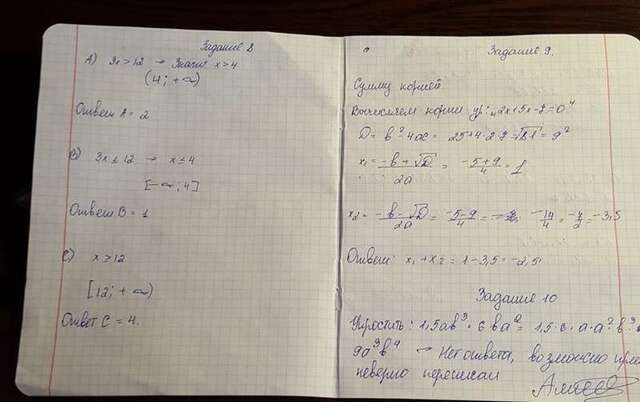 Задание 8
А) 3x>12 → Значит x>4
(4; +∞)
Ответ А = 2
В) 3x≤12 → x≤4
[-∞; 4]
Ответ В = 1
С) x>12
[12; +∞)
Ответ С = 4.
Задание 9.
Сумму корней
Вычисляем корни ур:
D = b² - 4ac = 25+4·2·7 = √81 = 9²
x₁ = -b+√D / 2a = -5+9 / 4 = 1
x₂ = -b-√D / 2a = -5-9 / 4 = -14 / 4 = -7 / 2 = -3,5
Ответ: x₁+x₂ = 1-3,5 = -2,5
Задание 10
Упростить: 1,5ab³ · 6ba² = 1,5·6·a·a²·b³
9a³b⁴ — Нет ответа, возможно
неверно переписан